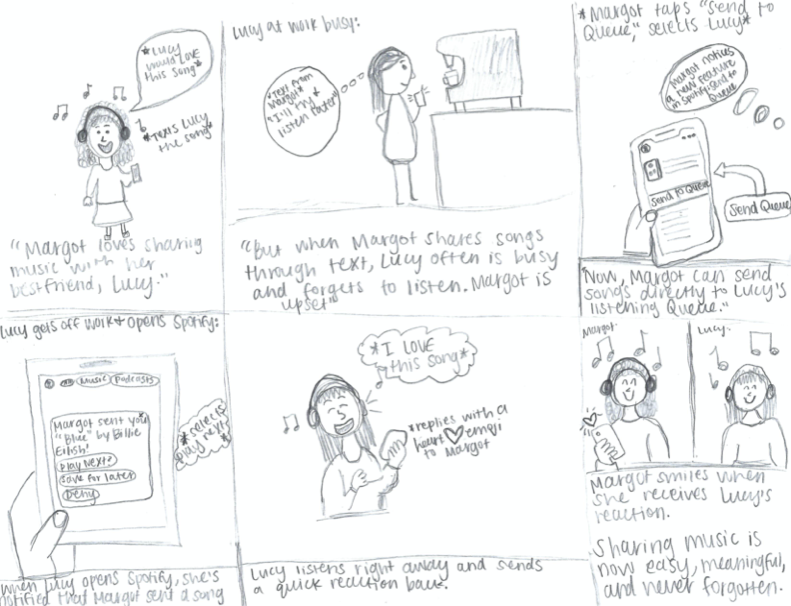 *Lucy
would LOVE
this song*
*Texts Lucy
the song*
"Margot loves sharing
music with her
bestfriend, Lucy."
Lucy at work busy:
*Text from
Margot*
"I'll try &
listen later"
"But when Margot shares songs
through text, Lucy often is busy
and forgets to listen. Margot is
upset"
*Margot taps "Send to
Queue," selects Lucy*
Margot notices
a new feature
in spotify: Send to
Queue
Send to Queue
Send Queue
"Now, Margot can send
songs directly to Lucy's
listening Queue."
Lucy gets off work & opens Spotify:
Music
Podcasts
Margot sent you
"Blue" by Billie
Eilish!
Play Next?
Save for later
Deny
*selects
play next*
When Lucy opens Spotify, she's
notified that Margot sent a song
*I LOVE
this song*
*replies with a
heart emoji
to Margot
Lucy listens right away and sends
a quick reaction back.
Margot:
Lucy:
Margot smiles when
she receives Lucy's
reaction.
Sharing music is
now easy, meaningful,
and never forgotten.